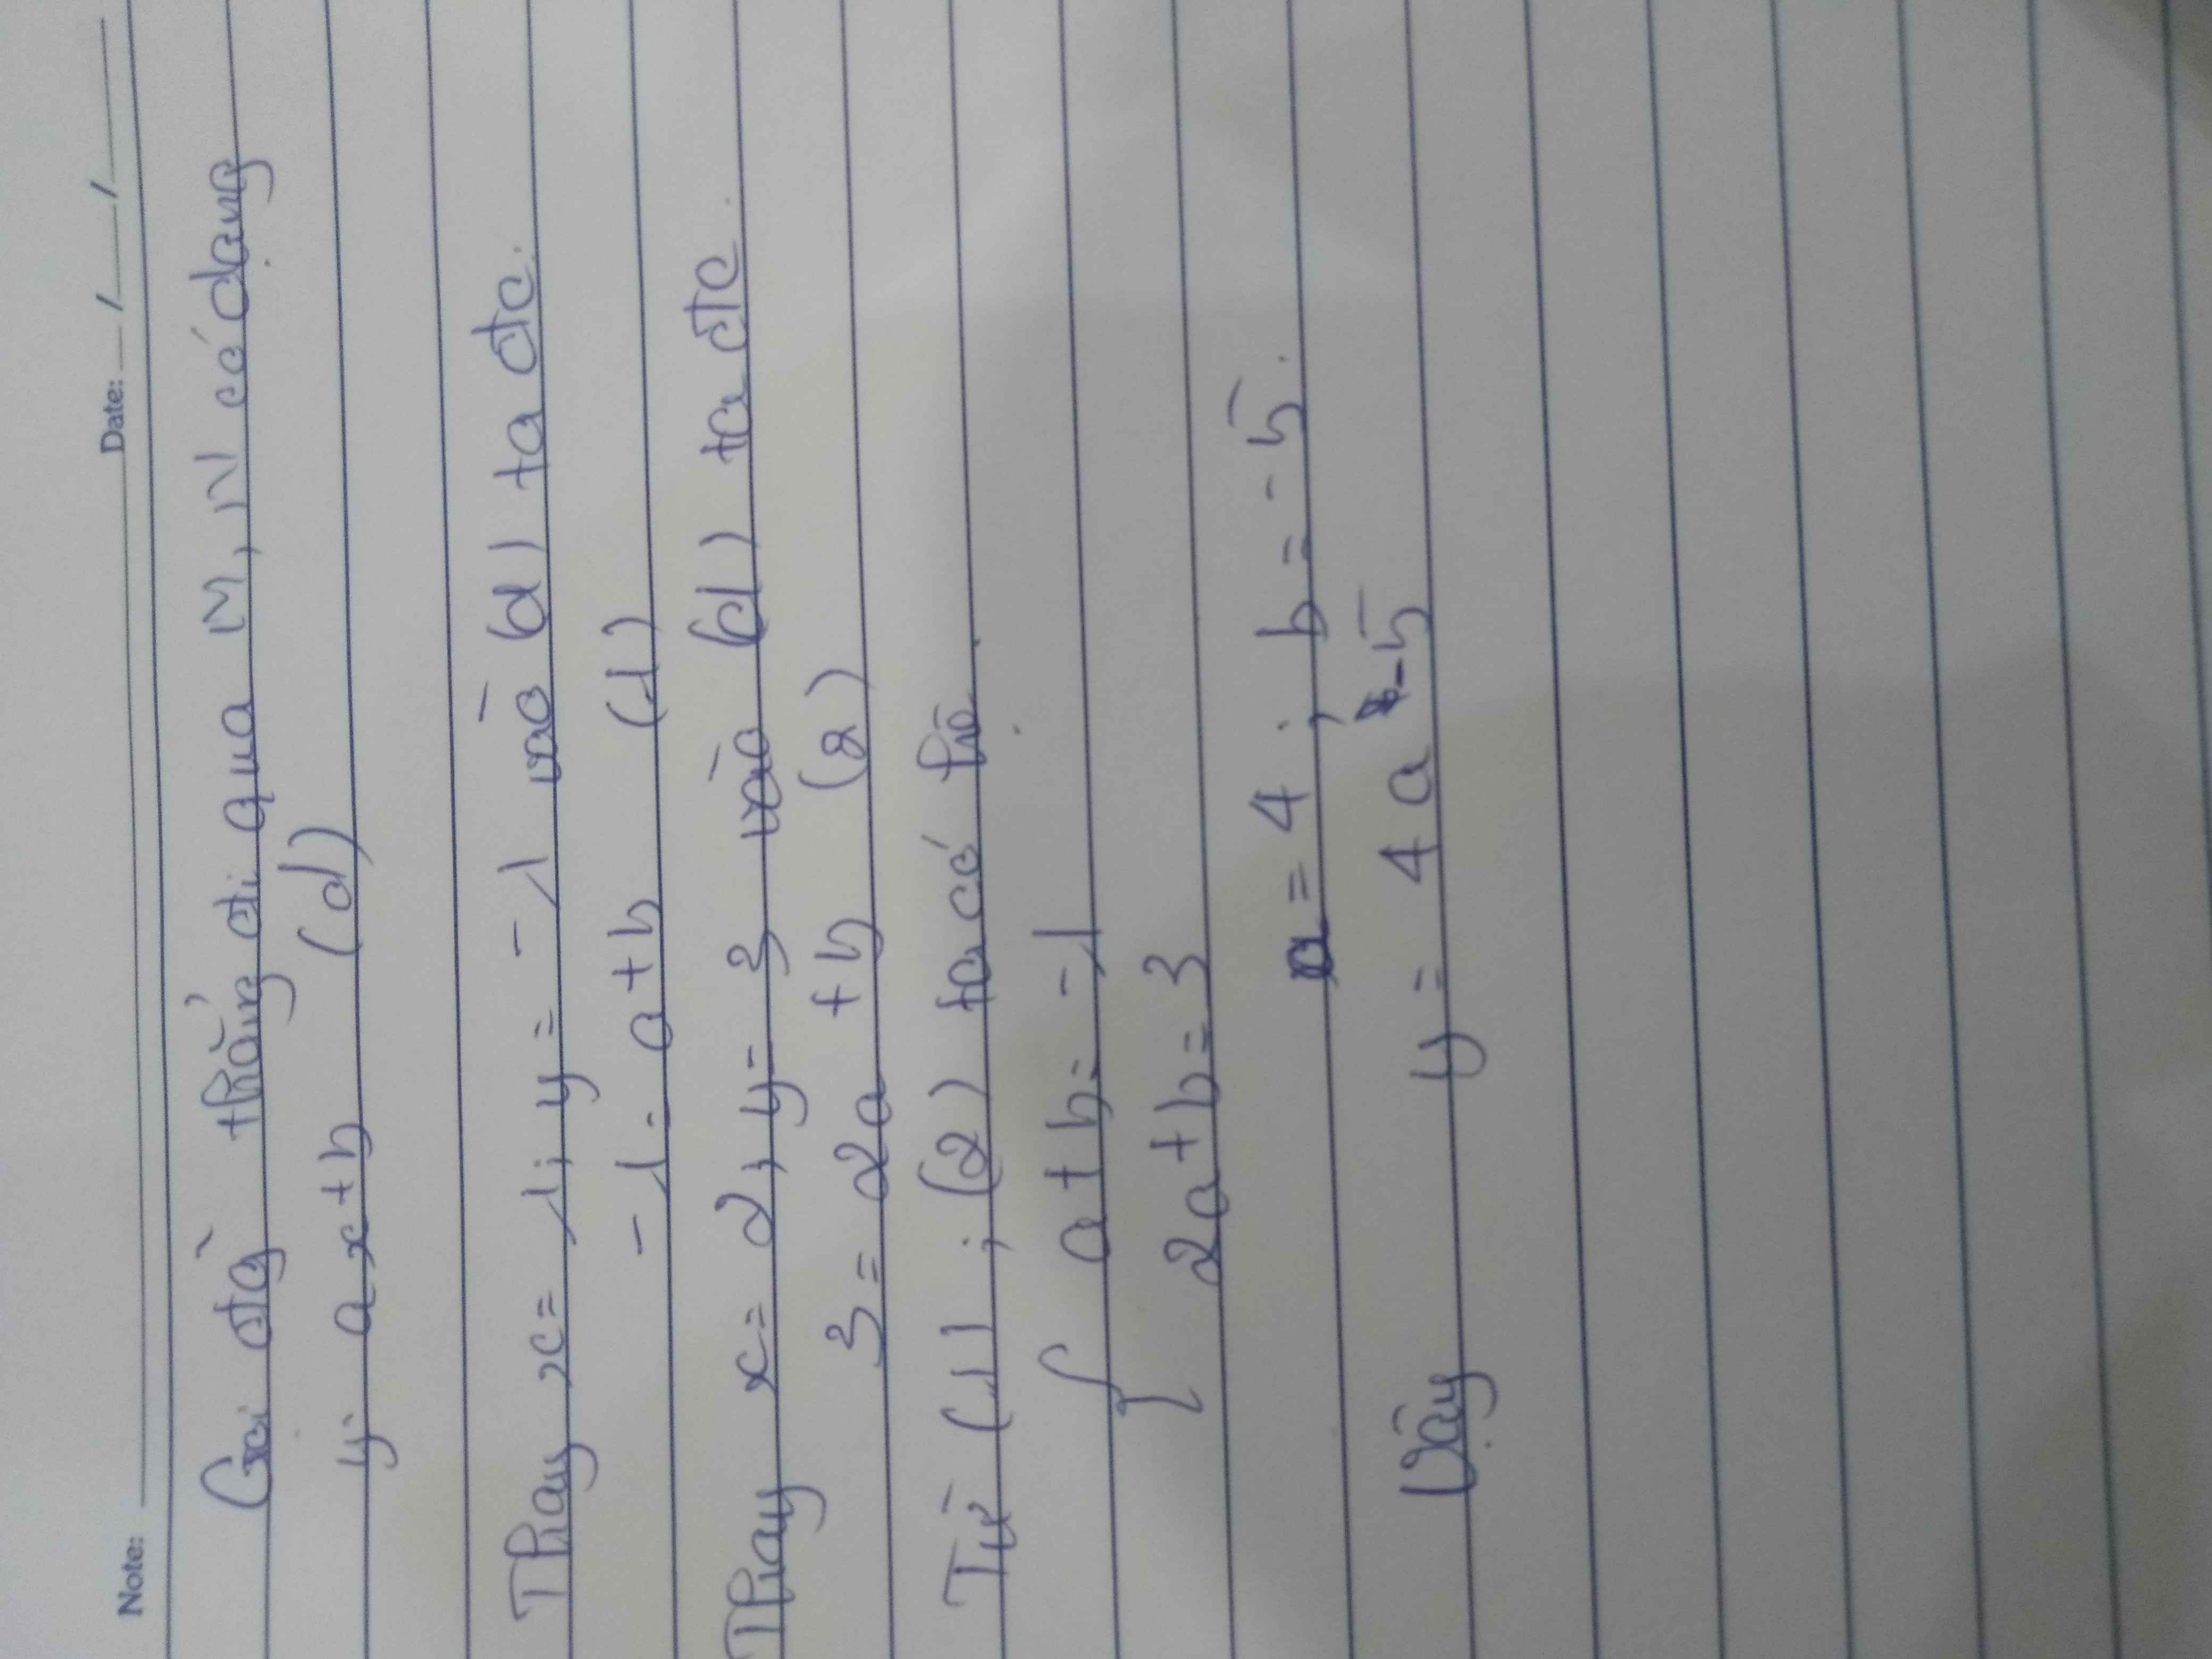 Note: Date: / /
Gọi đtg thẳng đi qua M, N có dạng
y = ax+b (d)
Thay x = 1; y = -1 vào (d) ta đc.
-1 = a+b (1)
Thay x = 2, y = 3 vào (d) ta đc
3 = 2a + b (2)
Từ (1); (2) ta có hệ
{ a + b = -1
2a+b = 3
a = 4; b = -5.
Vậy y = 4a -5